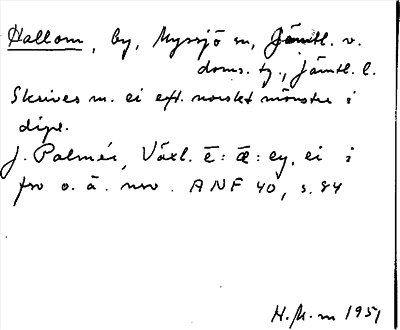 Hallom, by, Myssjö sn, Jämtl. v.
doms. tg., Jämtl. l.
Skrives m. ei eft. norskt mönster i
dipl.
J. Palmér, Växl. ē: ǣ: ey, ei i
fvo o. ä. nsv. ANF 40, s. 84
H. M-m 1951